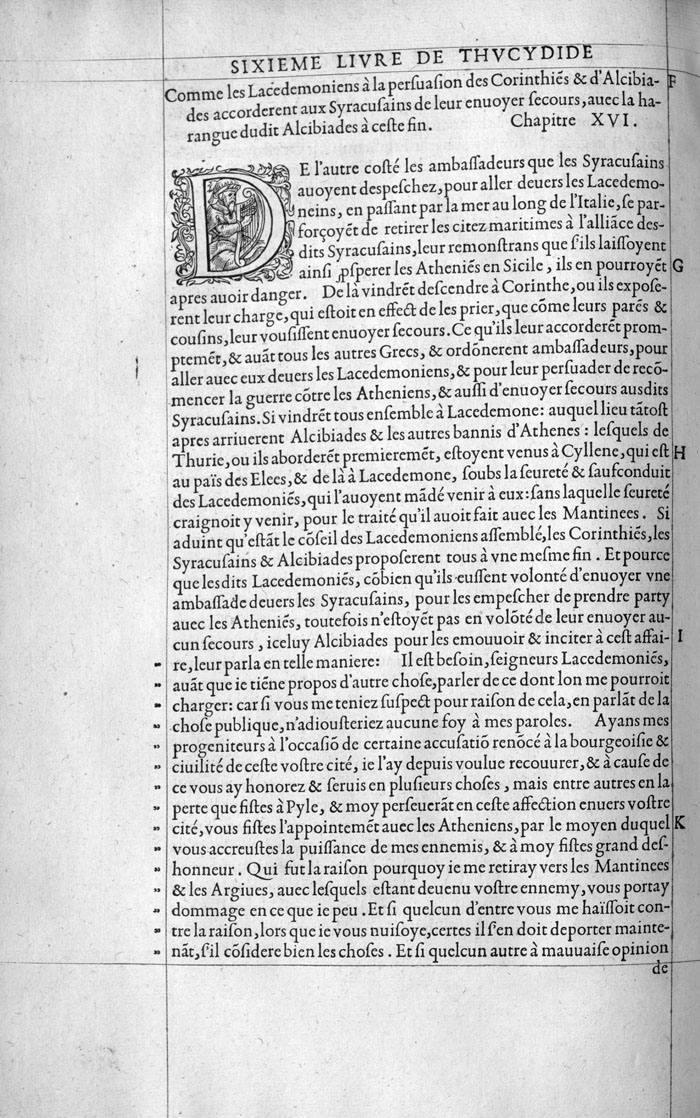 SIXIEME LIVRE DE THVCYDIDE
Comme les Lacedemoniens à la persuasion des Corinthiẽs & d'Alcibia- F
des accorderent aux Syracusains de leur enuoyer secours, auec la ha-
rangue dudit Alcibiades à ceste fin. Chapitre XVI.
DE l'autre costé les ambassadeurs que les Syracusains
auoyent despeschez, pour aller deuers les Lacedemo-
neins, en passant par la mer au long de l'Italie, se par-
forçoyẽt de retirer les citez maritimes à l'alliãce des-
dits Syracusains, leur remonstrans que s'ils laissoyent
ainsi ꝓsperer les Atheniẽs en Sicile, ils en pourroyẽt G
apres auoir danger. De là vindrẽt descendre à Corinthe, ou ils expose-
rent leur charge, qui estoit en effect de les prier, que cõme leurs parẽs &
cousins, leur vousissent enuoyer secours. Ce qu'ils leur accorderẽt prom-
ptemẽt, & auãt tous les autres Grecs, & ordõnerent ambassadeurs, pour
aller auec eux deuers les Lacedemoniens, & pour leur persuader de recõ-
mencer la guerre cõtre les Atheniens, & aussi d'enuoyer secours ausdits
Syracusains. Si vindrẽt tous ensemble à Lacedemone: auquel lieu tãtost
apres arriuerent Alcibiades & les autres bannis d'Athenes: lesquels de
Thurie, ou ils aborderẽt premieremẽt, estoyent venus à Cyllene, qui est H
au païs des Elees, & de là à Lacedemone, soubs la seureté & saufconduit
des Lacedemoniẽs, qui l'auoyent mãdé venir à eux: sans laquelle seureté
craignoit y venir, pour le traité qu'il auoit fait auec les Mantinees. Si
aduint qu'estãt le cõseil des Lacedemoniens assemblé, les Corinthiẽs, les
Syracusains & Alcibiades proposerent tous à vne mesme fin. Et pource
que lesdits Lacedemoniẽs, cõbien qu'ils eussent volonté d'enuoyer vne
ambassade deuers les Syracusains, pour les empescher de prendre party
auec les Atheniẽs, toutefois n'estoyẽt pas en volõté de leur enuoyer au-
cun secours, iceluy Alcibiades pour les emouuoir & inciter à cest affai- I
" re, leur parla en telle maniere: Il est besoin, seigneurs Lacedemoniẽs,
" auãt que ie tiẽne propos d'autre chose, parler de ce dont lon me pourroit
" charger: car si vous me teniez suspect pour raison de cela, en parlãt de la
" chose publique, n'adiousteriez aucune foy à mes paroles. Ayans mes
" progeniteurs à l'occasiõ de certaine accusatiõ renõcé à la bourgeoisie &
" ciuilité de ceste vostre cité, ie l'ay depuis voulue recouurer, & à cause de
" ce vous ay honorez & seruis en plusieurs choses, mais entre autres en la
" perte que fistes à Pyle, & moy perseuerãt en ceste affection enuers vostre
" cité, vous fistes l'appointemẽt auec les Atheniens, par le moyen duquel K
" vous accreustes la puissance de mes ennemis, & à moy fistes grand des-
" honneur. Qui fut la raison pourquoy ie me retiray vers les Mantinees
" & les Argiues, auec lesquels estant deuenu vostre ennemy, vous portay
" dommage en ce que ie peu. Et si quelcun d'entre vous me haïssoit con-
" tre la raison, lors que ie vous nuisoye, certes il s'en doit deporter mainte-
" nãt, s'il cõsidere bien les choses. Et si quelcun autre à mauuaise opinion
de